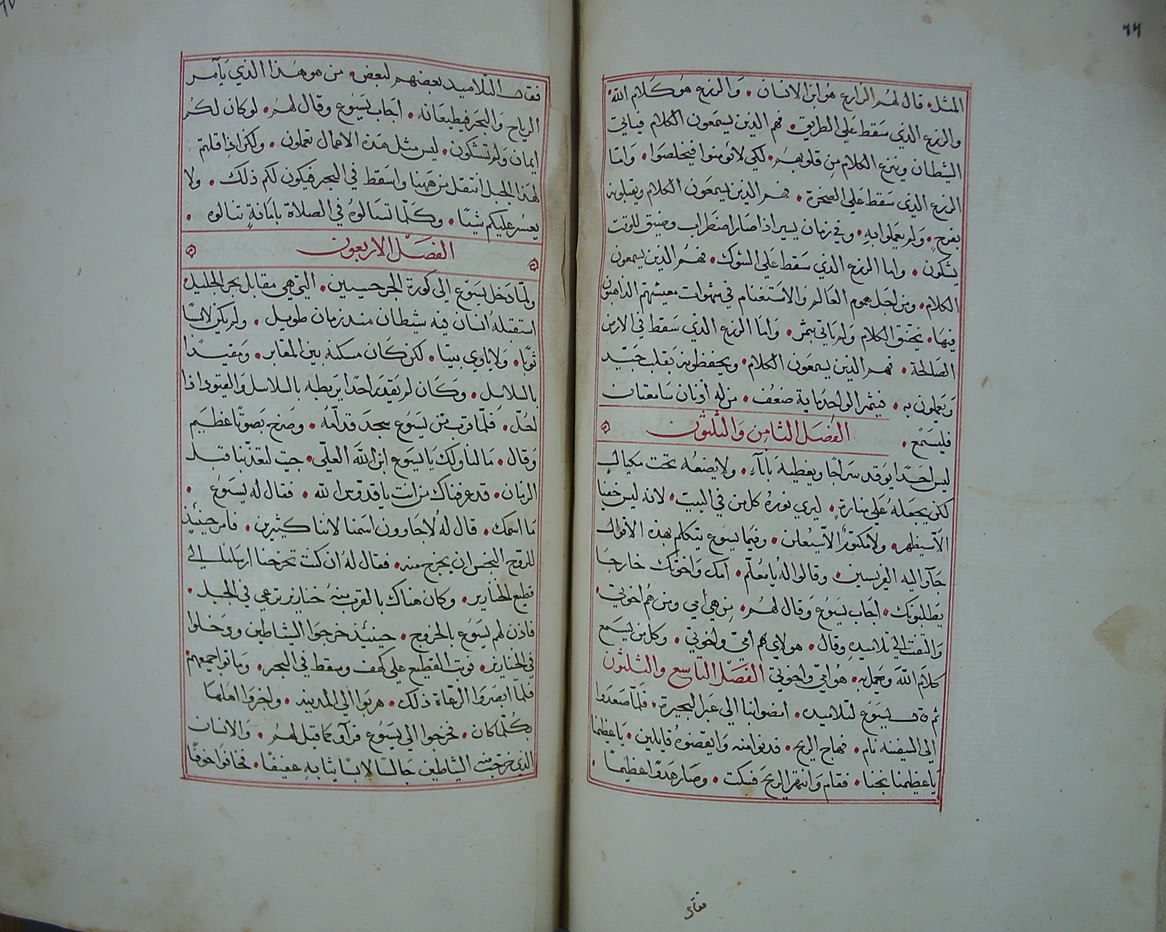 ٦٦
المثل. قال لهم الزارع هو ابن الانسان. والزرع هو كلام الله.
والزرع الذي سقط على الطريق. فهم الذين يسمعون الكلام فياتي
الشيطان وينزع الكلام من قلوبهم. لكي لا يومنوا فيخلصوا. واما
الزرع الذي سقط على الصخرة. هم الذين يسمعون الكلام ويقبلونه
بفرح. ولم يعملوا به. وفي زمان يسير اذا صار اضطراب وضيق للوقت
يشكون. واما الزرع الذي سقط على الشوك. فهم الذين يسمعون
الكلام. ومن اجل هموم العالم والاستغنام في شهوات معيشتهم الذاهبون
فيها. يختنق الكلام ولم ياتي بثمر. واما الزرع الذي سقط في الارض
الصالحة. فهم الذين يسمعون الكلام. ويحفظونه بقلب جيد
ويعملون به. فيثمر الواحد ماية ضعف. من له أذنان سامعتان
فليسمع.
الفصل الثامن والثلثون
ليس احدًا يوقد سراجًا ويغطيه باناء. ولا يضعه تحت مكيال
لكن يجعله على منارة. ليرى نوره كل من في البيت. لانه ليس خفيا
الا سيظهر. ولا مكتومٌ الا سيعلن. وفيما يسوع يتكلم بهذه الأقوال
جاوا اليه الفريسين. وقالوا له يا معلم. امك واخوتك خارجا
يطلبونك. اجاب يسوع وقال لهم. من هي امي ومن هم اخوتي.
والتفت الى تلاميده وقال. هولاي هم أمي واخوتي. وكل من يسمع
كلام الله وعمل به. هو امي واخوتي الفصل التاسع والثلثون
ثم قال يسوع لتلاميده. امضوا بنا الى عبر البحيرة. فلما صعدوا
الى السفينة نام. فهاج الريح. فدنوا منه وايقضوه قايلين. يا عظيمنا
يا عظيمنا نجنا. فقام وانتهر الريح فسكت. وصار هدوًا عظيمًا.
فقال
فقال التلاميد بعضهم لبعض. من هو هذا الذي يأمر
الرياح والبحر فيطيعانه. اجاب يسوع وقال لهم. لو كان لكم
ايمان ولم تشكون. ليس مثل هذه الاعمال تعملون. ولكن اذا قلتم
لهذا الجبل انتقل من ههنا واسقط في البحر فيكون لكم ذلك. ولا
يعسر عليكم شيئا. وكلما تسالوه في الصلاة بامانةٍ تنالوه.
الفصل الاربعون
ولما دخل يسوع الى كورة الجرجسيين. التي هي مقابل بحر الجليل
استقبله انسان فيه شيطان منذ زمان طويل. ولم يكن لابسًا
ثوبًا. ولا ياوي بيتا. لكن كان مسكنه بين المقابر. ومقيدًا
بالسلاسل. وكان لم يقدر احدًا يربطه بالسلاسل والقيود اذا
انحل. فلما قرب من يسوع سجد قدامه. وصرخ بصوتًا عظيم
وقال. مالنا ولك يا يسوع ابن الله العلي. جيت لتعذبنا قبل
الزمان. قد عرفناك من انت يا قدوس الله. فقال له يسوع.
ما اسمك. قال له لاجاوون اسمنا لاننا كثيرين. فامر حينيذ
للروح النجس ان يخرج منه. فقال له ان كنت تخرجنا ارسلنا الى
قطيع الخنازير. وكان هناك بالقرب منه خنازير ترعى في الجبل.
فاذن لهم يسوع بالخروج. حينيذ خرجوا الشياطين ودخلوا
في الخنازير. فوثب القطيع على كهف وسقط في البحر. وماتوا جميعهم
فلما ابصروا الرعاة ذلك. هربوا الى المدينة. واخبروا اهلها
بكلما كان. فخرجوا الى يسوع فرآوه كما قيل لهم. والانسان
الذي خرجت منه الشياطين جالسًا لابسًا ثيابه عفيفًا. فخافوا خوفًا